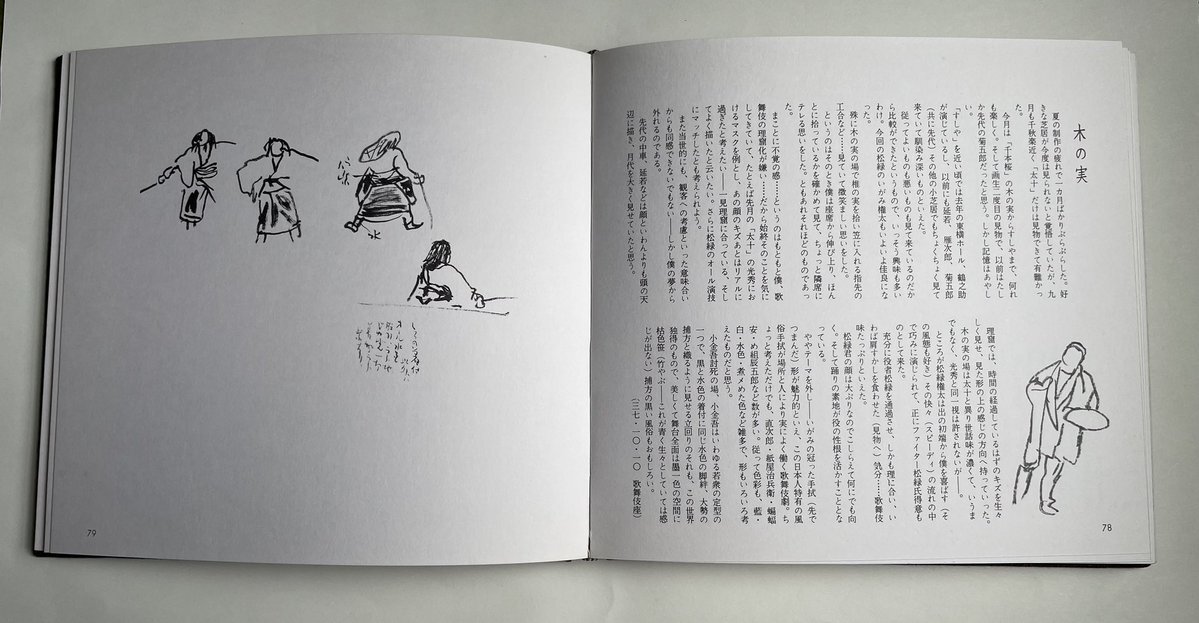 木の実
夏の制作の疲れで一カ月ばかりぶらぶらした。好
きな芝居が今度は見られないと覚悟していたが、九
月も千秋楽近く「太十」だけは見物できて有難かっ
た。
今月は「千本桜」の木の実からすしやまで、何れ
も楽しく。そして画生二度目の見物で、以前はたし
か先代の菊五郎だったと思う。しかし記憶はあやし
い。
「すしや」を近い頃では去年の東横ホール、鶴之助
が演じているし、以前にも延若、雁次郎、菊五郎
(共に先代)その他の小芝居でもちょくちょく見て
来ていて馴染み深いものといえた。
従ってよいものも悪いものも見て来ているのだか
ら比較ができたというもので、いっそう興味も多い
わけ。今回の松緑のいがみ権太もいよいよ佳良にな
った。
殊に木の実の場で椎の実を拾い笠に入れる指先の
工合など……見ていて微笑ましい思いをした。
というのはそのとき僕は座席から伸び上り、ほん
とに拾っているかを確かめて見て、ちょっと隣席に
テレる思いをした。ともあれそれほどのものであっ
た。
まことに不覚の感……というのはもともと僕、歌
舞伎の理窟化が嫌い……だから始終そのことを気に
してきていて、たとえば先月の「太十」の光秀にお
けるマスクを例とし、あの顔のキズあとはリアルに
過ぎたと考えたい――一見理窟に合っている、そし
てよく描いたと云いたい。さらに松緑のオール演技
にマッチしたとも考えられよう。
また当世的にも、観客への考慮といった意味合い
からも同感できないでもない――しかし僕の夢から
外れるのである。
先代の中車、延若などは顔といわんよりも頭の天
辺に描き、月代を大きく見せていたと思う。
理窟では、時間の経過しているはずのキズを生々
しく見せ、見た形の上の感じの方向へ持っていった。
木の実の場は太十と異り世話味が濃くて、いうま
でもなく、光秀と同一視は許されないが――。
ところが松緑権太は出の初端から僕を喜ばす(そ
の風態も好き)その快々(スピーディ)の流れの中
で巧みに演じられて、正にファイター松緑氏得意も
のとして来た。
充分に役者松緑を通過させ、しかも理に合い、い
わば肩すかしを食わせた(見物へ)気分……歌舞伎
味たっぷりといえた。
松緑君の顔は大ぶりなのでこしらえて何にでも向
く。そして踊りの素地が役の性根を活かすこととな
っている。
ややテーマを外し――いがみの冠った手拭(先で
つまんだ)形が魅力的といえ、この日本人特有の風
俗手拭が場所と人により実によく働く歌舞伎劇。ち
ょっと考えただけでも、直次郎・紙屋治兵衛・蝙蝠
安・め組辰五郎など数が多い。従って色彩も、藍・
白・水色・煮〆めた色など雑多で、形もいろいろ考
えたものだと思う。
小金吾討死の場、小金吾はいわゆる若衆の定型の
一つで、黒と水色の着付に同じ水色の脚絆、大勢の
捕方と織るように見せる立回りのそれも、この世界
独得のもので、美しくて舞台全面は墨一色の空間に
枯色笹(竹やぶ――これが青く生々としていては感
じが出ない)捕方の黒い風俗もおもしろい。
(三七・一〇・一〇 歌舞伎座)
78
水
79